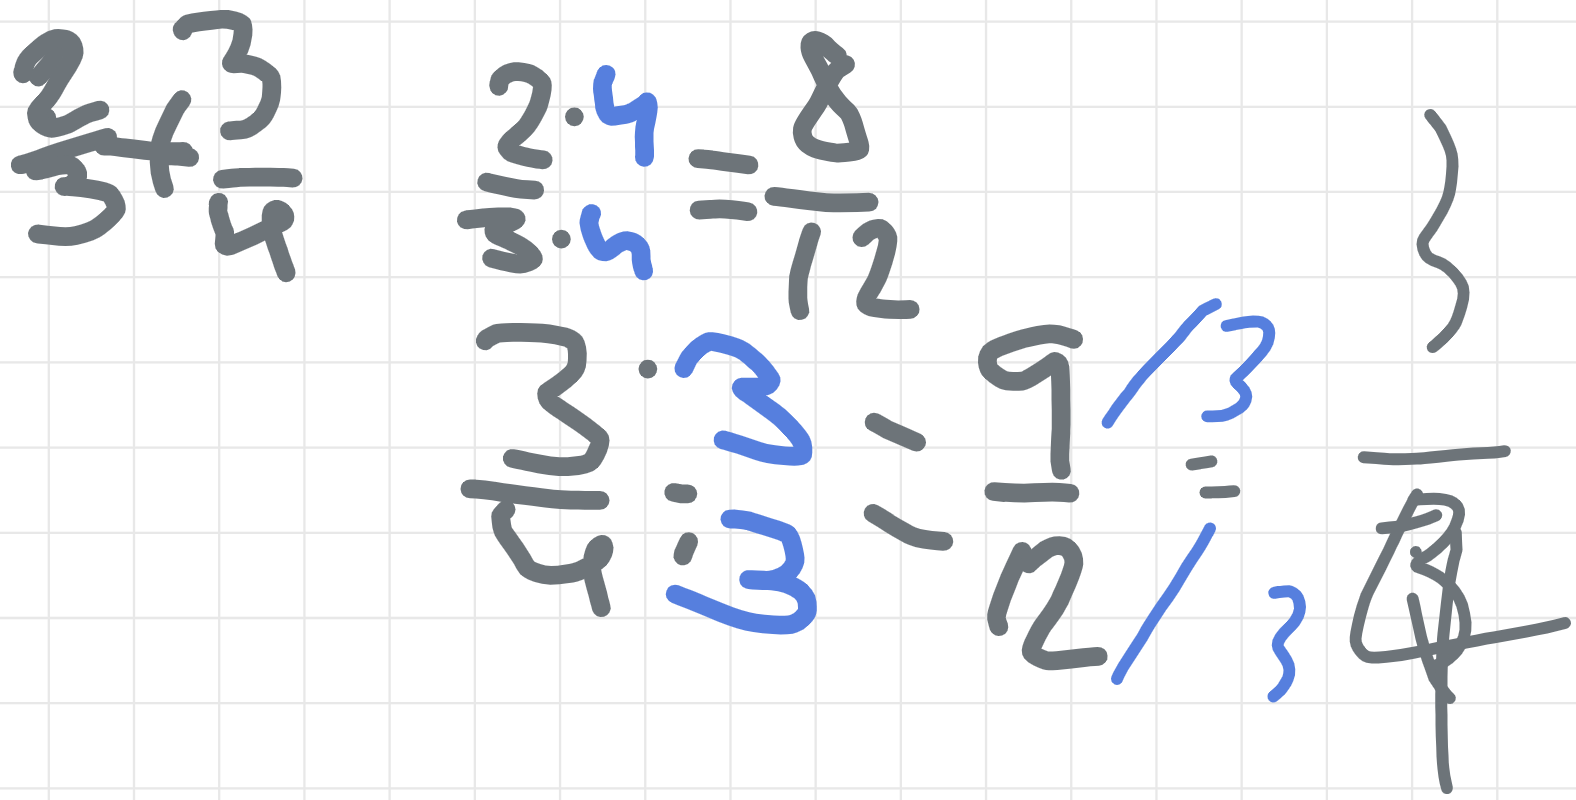 2/3 + 3/4
2·4/3·4 = 8/12
3·3/4·3 = 9/3/12/3 = 3/4